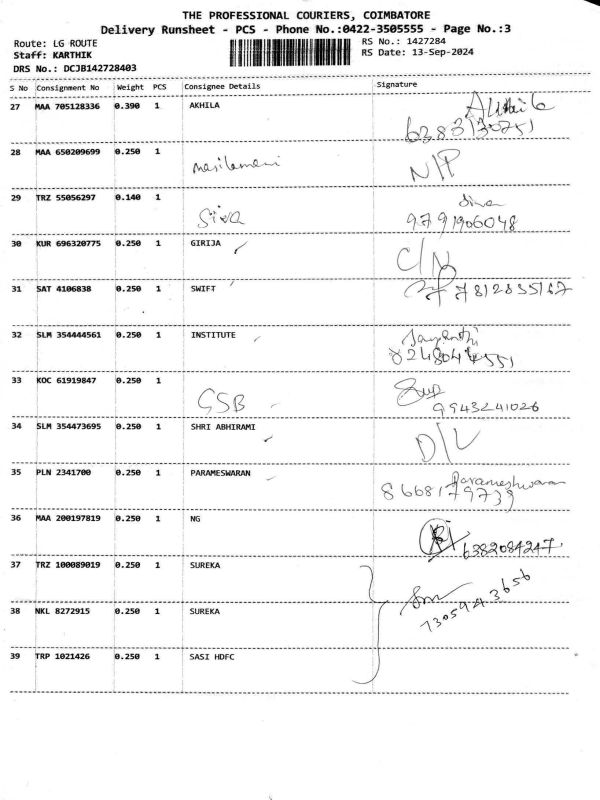 THE PROFESSIONAL COURIERS, COIMBATORE
Delivery Runsheet - PCS - Phone No.:0422-3505555 - Page No.:3
Route: LG ROUTE RS No.: 1427284
Staff: KARTHIK RS Date: 13-Sep-2024
DRS No.: DCJB142728403
S No Consignment No Weight PCS Consignee Details Signature
27 MAA 705128336 0.390 1 AKHILA Akhila
6383130751
28 MAA 650209699 0.250 1 Masilamani N/P
29 TRZ 55056297 0.140 1 Siva Siva
9791906048
30 KUR 696320775 0.250 1 GIRIJA C/N
31 SAT 4106838 0.250 1 SWIFT 7812835167
32 SLM 354444561 0.250 1 INSTITUTE Jayanthi
8248044551
33 KOC 61919847 0.250 1 GSB
9943241026
34 SLM 354473695 0.250 1 SHRI ABHIRAMI D/L
35 PLN 2341700 0.250 1 PARAMESWARAN Parameshwaran
8668179739
36 MAA 200197819 0.250 1 NG
6382084247
37 TRZ 100089019 0.250 1 SUREKA
7305943656
38 NKL 8272915 0.250 1 SUREKA
39 TRP 1021426 0.250 1 SASI HDFC